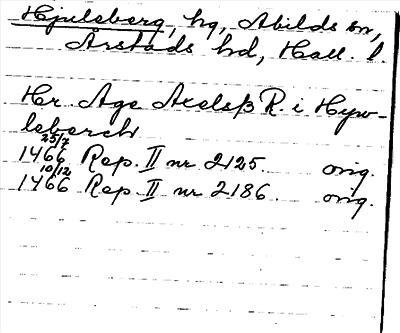 Hjulsberg, hg, Abilds sn,
Årstads hd, Hall. l.
Hr Age Axelsß R. i Hyw-
lsberch
1466 25/7 Rep. II nr 2125. orig.
1466 10/12 Rep. II nr 2186. orig.